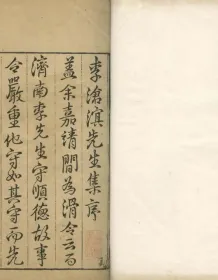 李滄溟先生集序
蓋余嘉靖間為滑令云而
濟南李先生守順德故事
令嚴重他守如其守而先